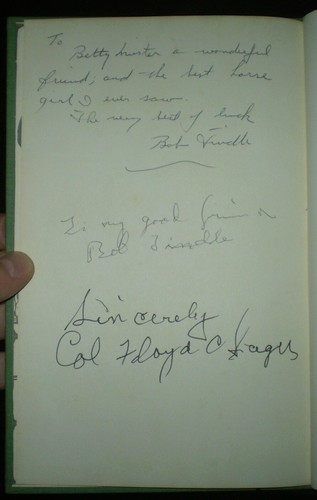 To
Betty a wonderful
friend, and the best horse
girl I ever saw.
The very best of luck
Bob Tindle
To my good friend
Bob Tindle
Sincerely
Col Floyd C